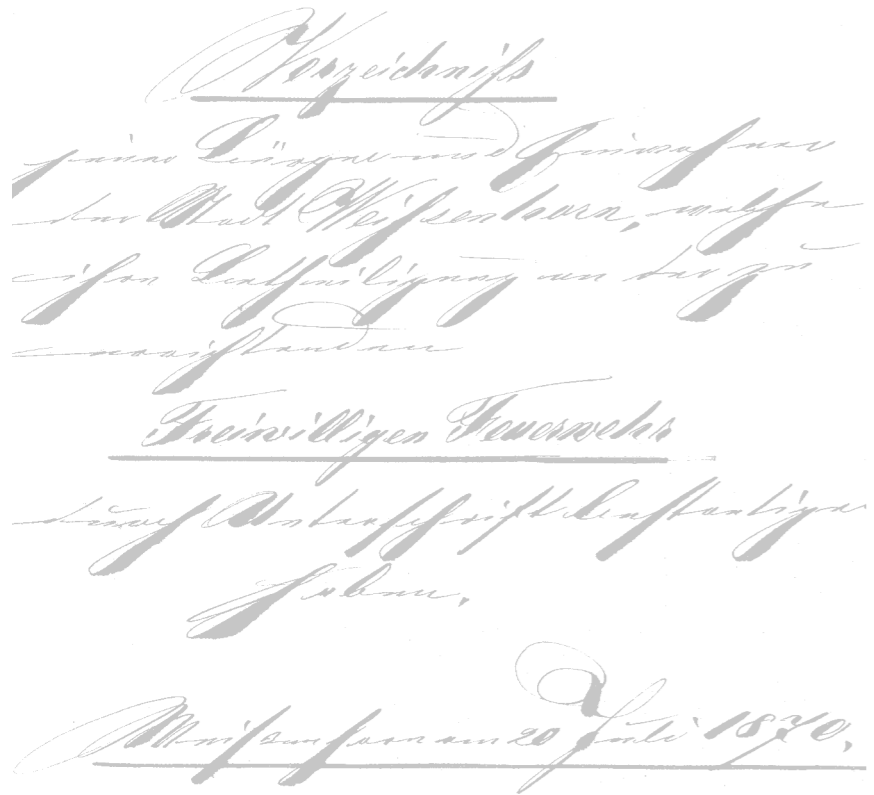 Verzeichniß
jener Bürger und Einwohner
der Stadt Weißenhorn, welche
ihre Betheiligung an der zu
errichtenden
Freiwilligen Feuerwehr
durch Unterschrift bestaetiget
haben.
Weißenhorn am 20 Juli 1870.